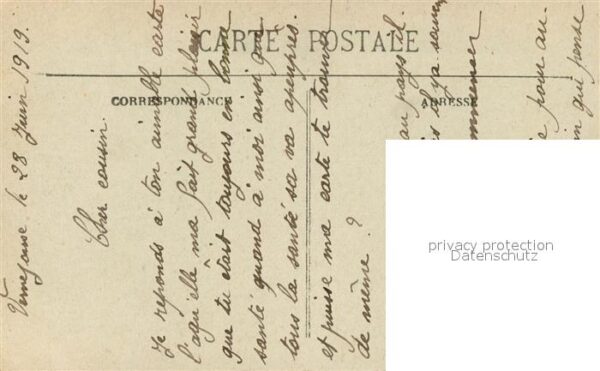 CARTE POSTALE
CORRESPONDANCE
ADRESSE
le 28 Juin 1913.
Cher cousin.
Je reponds à ton aimable carte
laqu'elle m'a fait grand plaisir
que tu était toujours en bonne
santé quand à moi ainsi que
tous la santé sa va apeuprès.
et puisse ma carte te trouver
de même ?
au pays il
il y a
commencer
pour au
que pense
privacy protection
Datenschutz